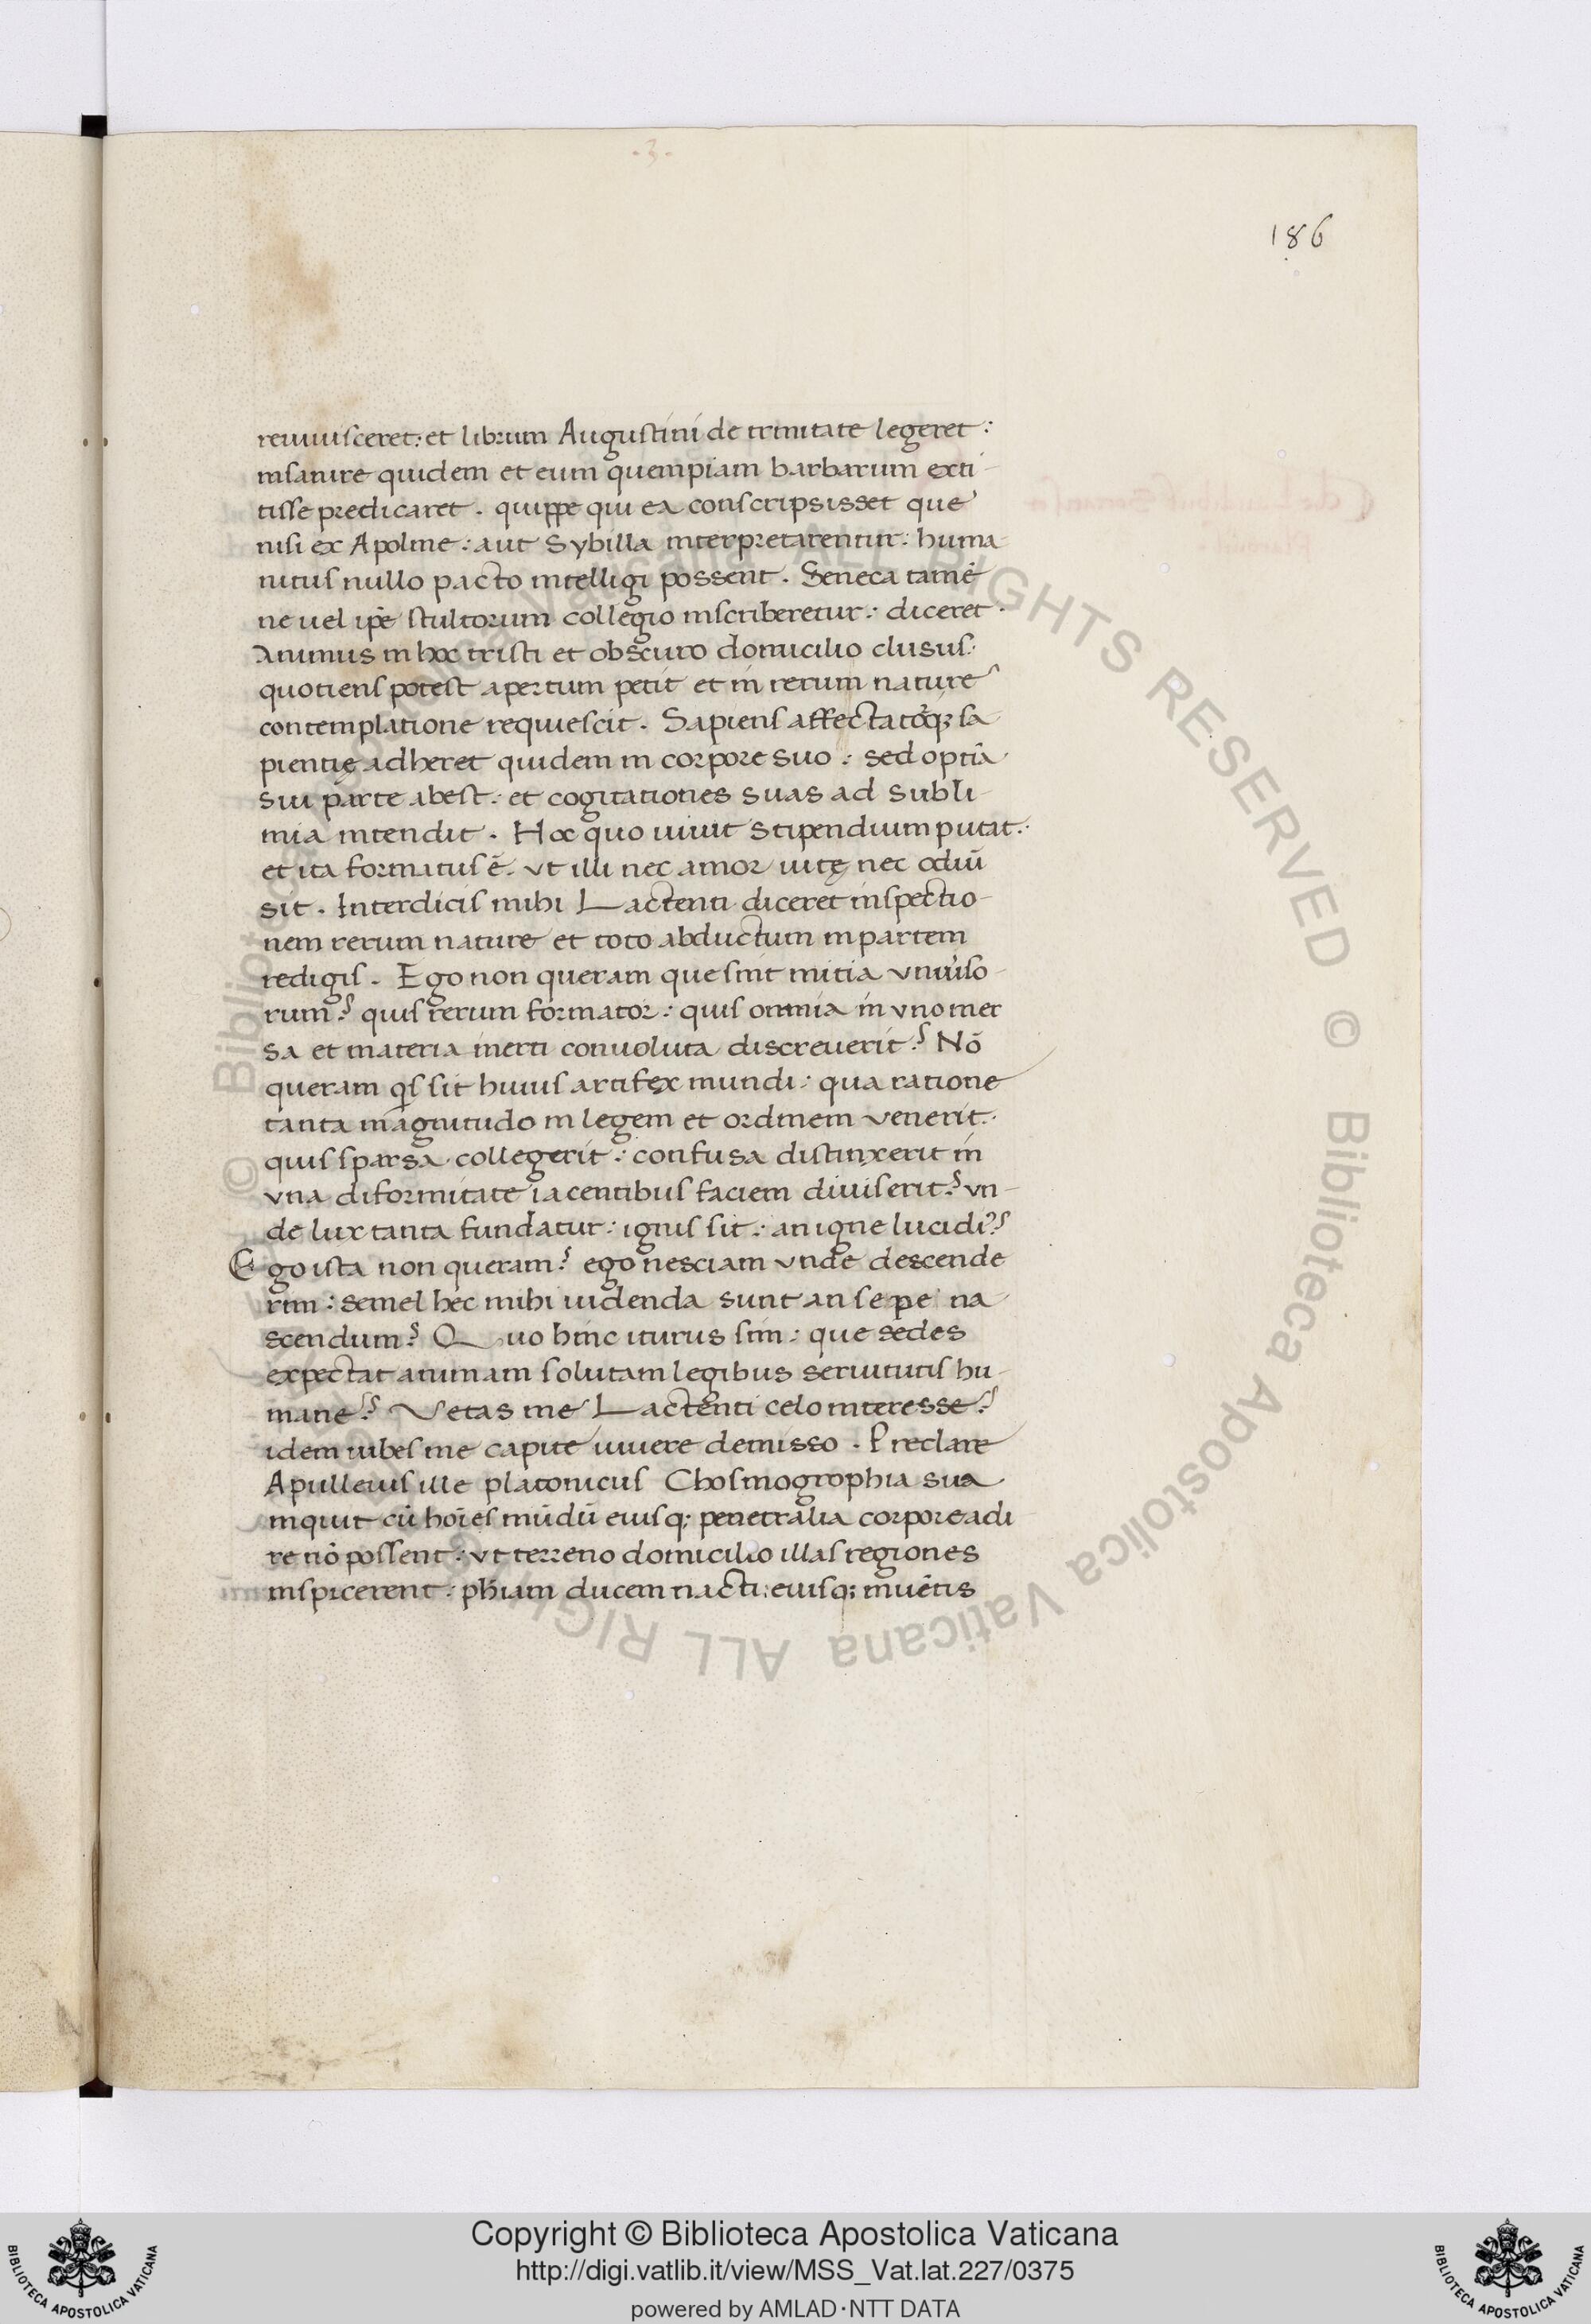 ·3·
186
reuiuisceret: et librum Augustini de trinitate legeret:
insanire quidem et eum quempiam barbarum exti-
tisse predicaret. quippe qui ea conscripsisset que
nisi ex Apoline: aut Sybilla interpretarentur: huma-
nitus nullo pacto intelligi possent. Seneca tamē
ne uel ipē stultorum collegio inscriberetur: diceret.
Animus in hoc tristi et obscuro domicilio clusus:
quotiens potest apertum petit et in rerum nature
contemplatione requiescit. Sapiens affectatōq; sa
pientię adheret quidem in corpore suo: sed optīa
sui parte abest: et cogitationes suas ad subli-
mia intendit. Hoc quo uiuit stipendium putat:
et ita formatus ē. vt illi nec amor uitę nec odiū
sit. Interdicis mihi Lactenti diceret inspectio-
nem rerum nature et toto abductum in partem
redigis. Ego non queram que sint initia vniu'so-
rum? quis rerum formator: quis omnia in vno mer
sa et materia inerti conuoluta discreuerit? Nō
queram qis sit huius artifex mundi: qua ratione
tanta magnitudo in legem et ordinem venerit:
quis sparsa collegerit: confusa distinxerit in
vna diformitate iacentibus faciem diuiserit? vn-
de lux tanta fundatur: ignis sit: an igne lucidi?
Ego ista non queram? ego nesciam vnde descende
rim: semel hec mihi uidenda sunt an sepe na
scendum? Quo hinc iturus sim: que sedes
expectat animam solutam legibus seruitutis hu-
mane? Vetas me Lactenti celo interesse?
idem iubes me capite uiuere demisso. Preclare
Apulleius ille platonicus Chosmogrophia sua
inquit cū hoīes mūdū eiusq; penetralia corpore adi
re nō possent: vt terreno domicilio illas regiones
inspicerent: phīam ducem nacti: eiusq; inuētis
© Biblioteca Apostolica Vaticana ALL RIGHTS RESERVED © Biblioteca Apostolica Vaticana ALL RIGHTS RESERVED
Copyright © Biblioteca Apostolica Vaticana
http://digi.vatlib.it/view/MSS_Vat.lat.227/0375
powered by AMLAD·NTT DATA
BIBLIOTECA APOSTOLICA VATICANA
BIBLIOTECA APOSTOLICA VATICANA